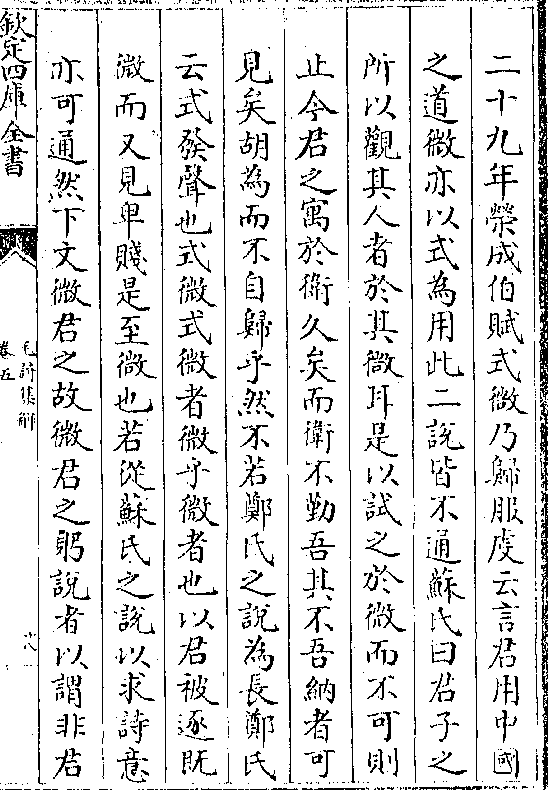 二十九年榮成伯賦式微乃歸服虔云言君用中國
之道微亦以式為用此二說皆不通蘇氏曰君子之
所以觀其人者於其微耳是以試之於微而不可則
止今君之寓於衛久矣而衛不勤吾其不吾納者可
見矣胡為而不自歸乎然不若鄭氏之說為長鄭氏
云式發聲也式微式微者微乎微者也以君被逐既
微而又見卑賤是至微也若從蘇氏之說以求詩意
亦可通然下文微君之故微君之躬說者以謂非君
欽定四庫全書
毛詩集解
卷五
十八